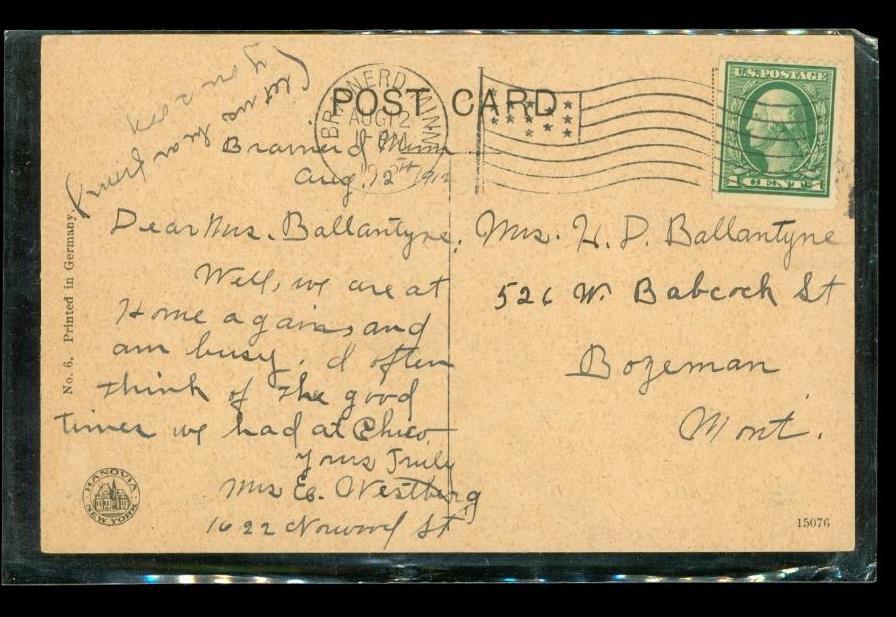 POST CARD
BRAINERD, MINN.
AUG 12
U.S. POSTAGE
1 CENT 1
Let us hear from
you soon
Brainerd Minn
Aug. 12th 1912
Dear Mrs. Ballantyne,
Well, we are at
Home again, and
am busy, I often
think of the good
times we had at Chico,
Yours Truly
Mrs E. Westberg
1622 Norwood St
Mrs. H. D. Ballantyne
526 W. Babcock St
Bozeman
Mont.
No. 6. Printed in Germany.
HANOVIA
NEW YORK
15076